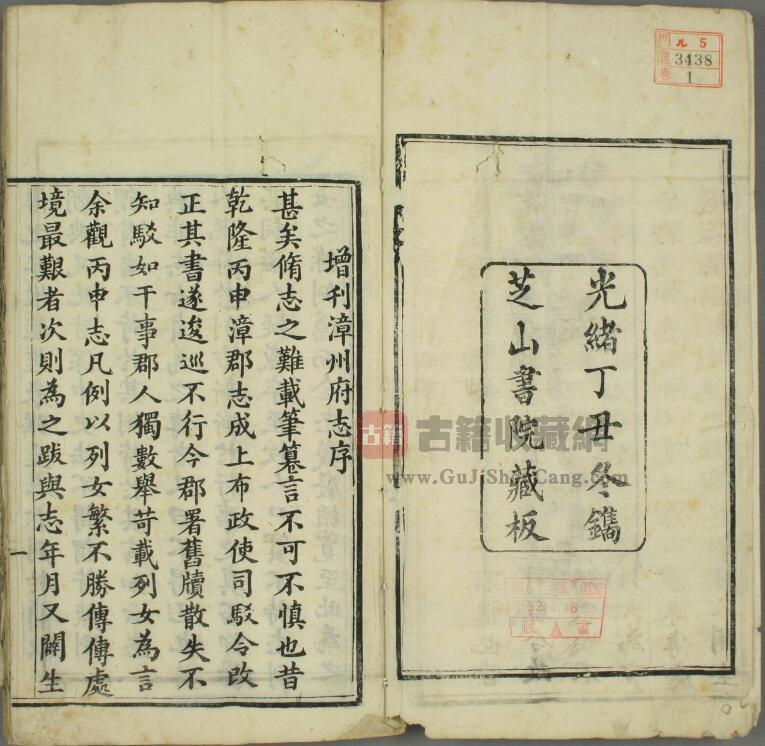 門 ル 5
號 3438
卷 1
光緒丁丑冬鐫
芝山書院藏板
增刊漳州府志序
甚矣脩志之難載筆纂言不可不慎也昔
乾隆丙申漳郡志成上布政使司駁令改
正其書遂逡巡不行今郡署舊牘散失不
知駁如干事郡人獨數舉苛載列女為言
余觀丙申志凡例以列女繁不勝傳傳處
境最艱者次則為之跋與志年月又闢生
一
古籍 古籍收藏網
www.GuJiShouCang.com
藏 書